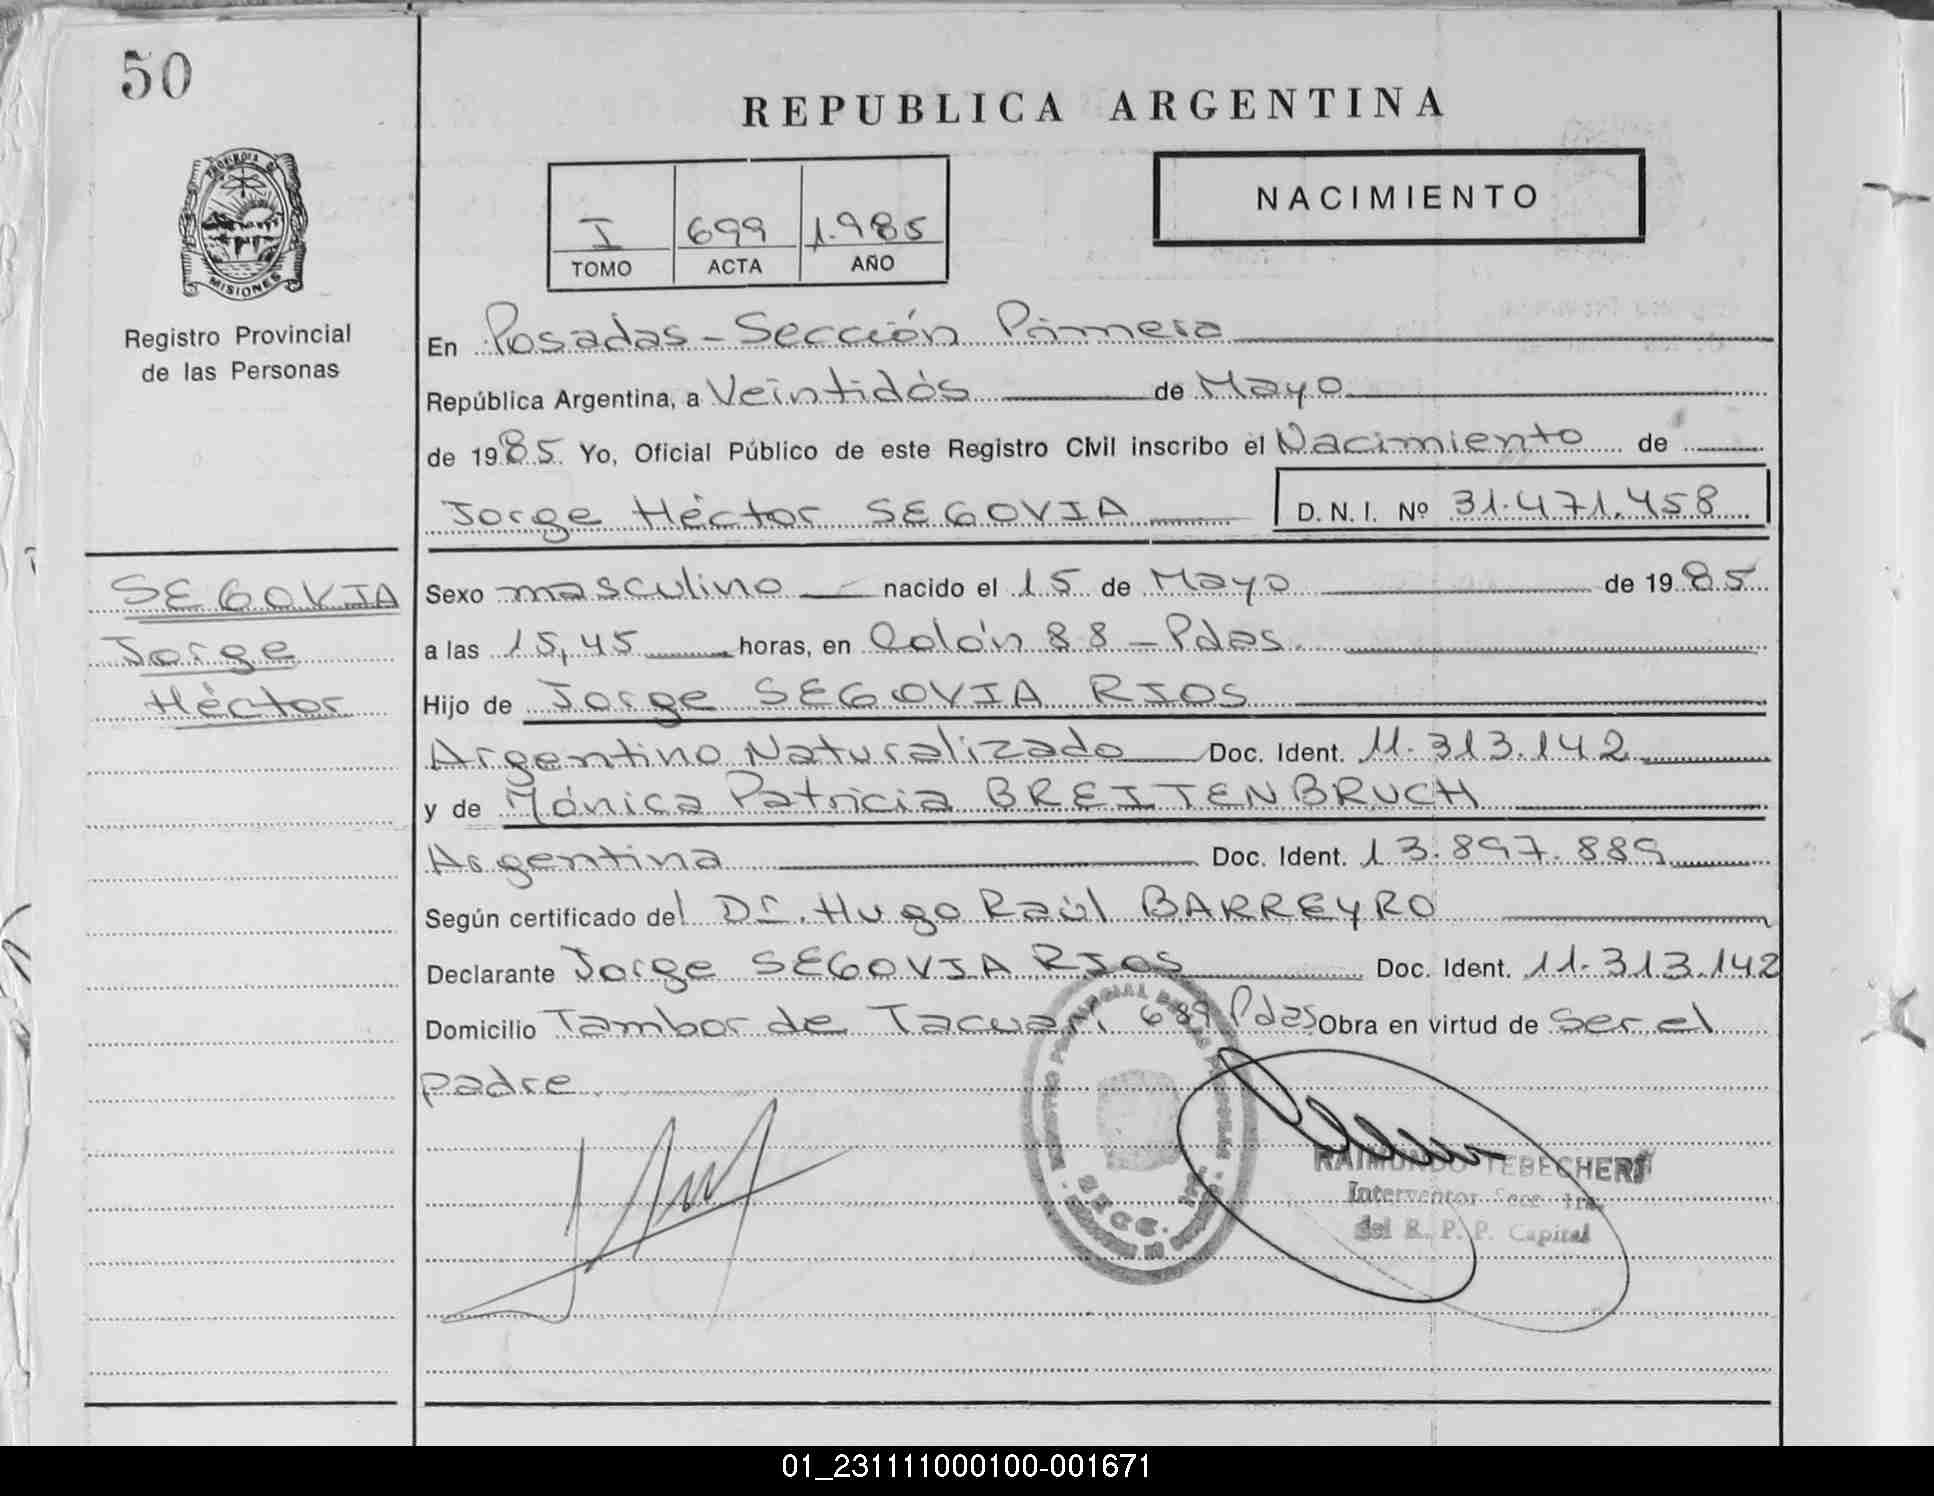 50
REPUBLICA ARGENTINA
PROVINCIA DE
MISIONES
Registro Provincial
de las Personas
NACIMIENTO
I 699 1.985
TOMO ACTA AÑO
En Posadas - Sección Primera
República Argentina, a Veintidós de Mayo
de 1985. Yo, Oficial Público de este Registro Civil inscribo el Nacimiento de
Jorge Héctor SEGOVIA D.N.I. Nº 31.471.458
SEGOVIA
Jorge
Héctor
Sexo masculino nacido el 15 de Mayo de 1985
a las 15,45 horas, en Colón 88 - Pdas.
Hijo de Jorge SEGOVIA RIOS
Argentino Naturalizado Doc. Ident. 11.313.142
y de Mónica Patricia BREITENBRUCH
Argentina Doc. Ident. 13.897.889
Según certificado del Dr. Hugo Raúl BARREYRO
Declarante Jorge SEGOVIA RIOS Doc. Ident. 11.313.142
Domicilio Tambor de Tacuarí 689 Pdas Obra en virtud de ser el
padre
REGISTRO PROVINCIAL DE LAS PERSONAS
SECC. 1ra.
RAIMUNDO TEBECHERI
Interventor Secc. 1ra.
del R. P. P. Capital
01_231111000100-001671